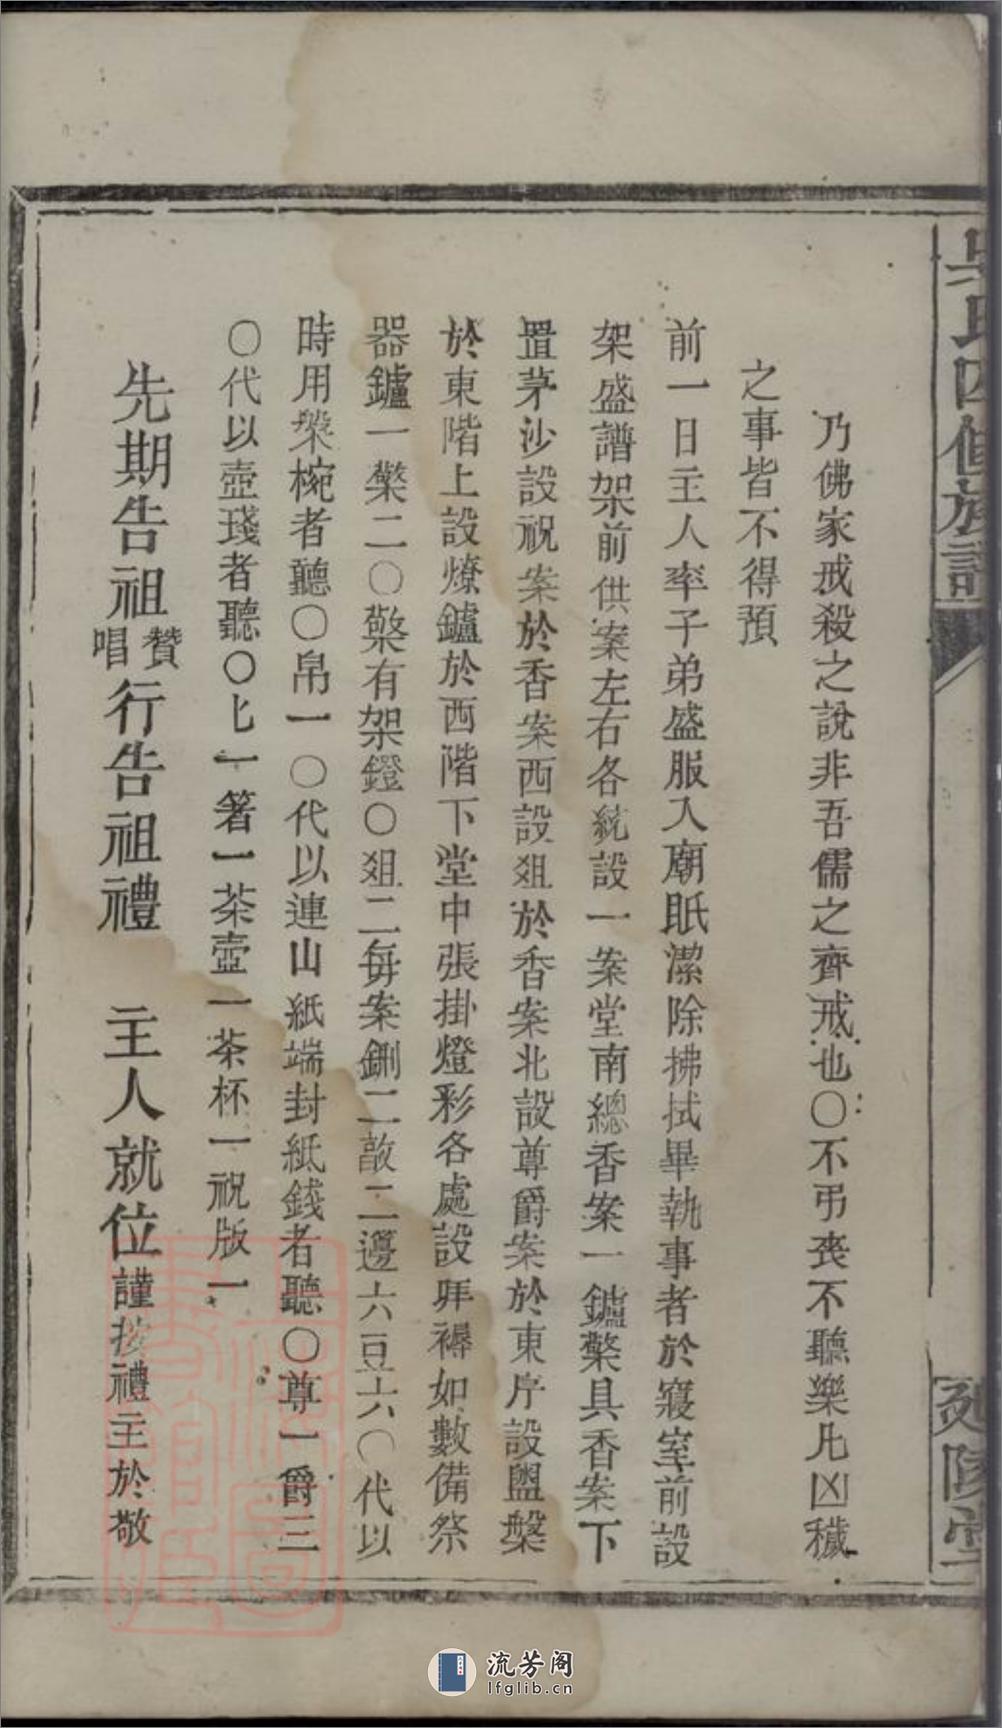 吳氏四修族譜
延陵堂
乃佛家戒殺之說非吾儒之齊戒也〇不弔喪不聽樂凡凶穢
之事皆不得預
前一日主人率子弟盛服入廟眡潔除拂拭畢執事者於寢室前設
架盛譜架前供案左右各統設一案堂南總香案一鑪檠具香案下
置茅沙設祝案於香案西設俎於香案北設尊爵案於東序設盥槃
於東階上設燎鑪於西階下堂中張掛燈彩各處設拜褥如數備祭
器鑪一檠二〇檠有架鐙〇俎二每案鉶二敦二籩六豆六〇代以
時用槃椀者聽〇帛一〇代以連山紙端封紙錢者聽〇尊一爵三
〇代以壺琖者聽〇匕一箸一茶壺一茶杯一祝版一
先期告祖贊唱行告祖禮 主人就位謹按禮主於敬
流芳阁
lfglib.cn